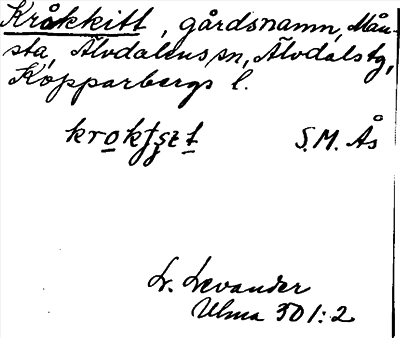 Kråkkitt, gårdsnamn, Mån-
sta, Älvdalens sn, Älvdals tg,
Kopparbergs l.
S.M. Ås
L. Levander
Ulma 301:2